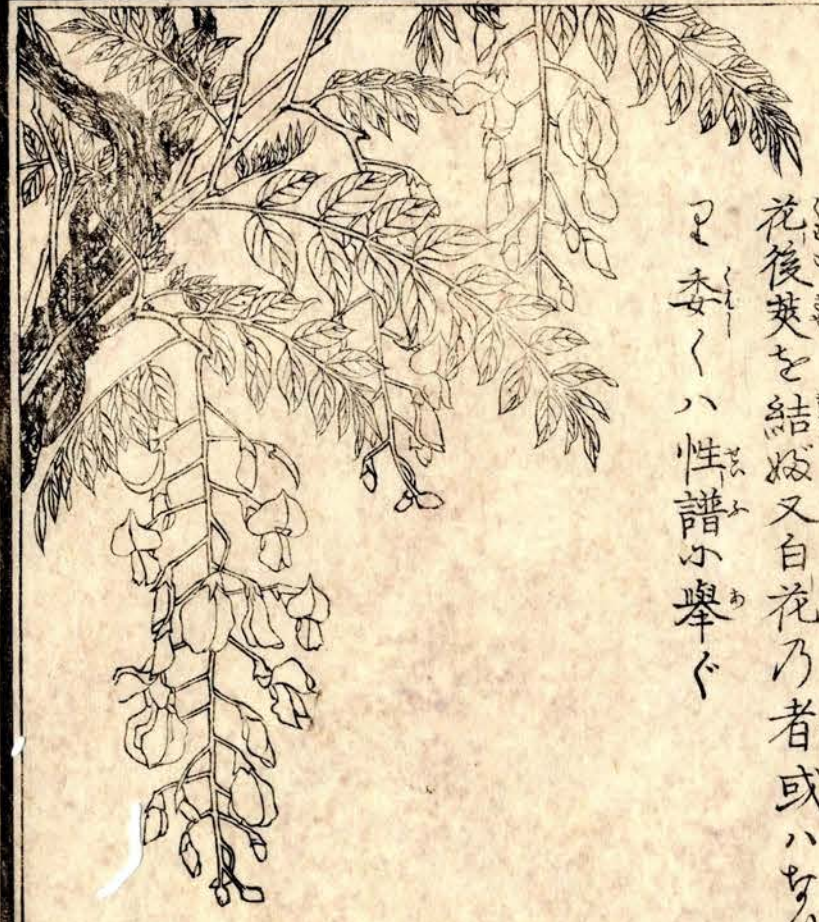 花後莢を結ぶ又白花乃者或ハな
り委くハ性譜に擧ぐ